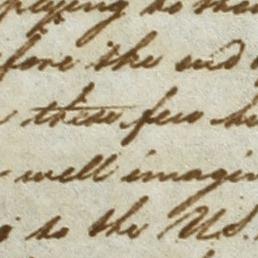 plying to
fore the end
these few
well imagin
to the U.S.